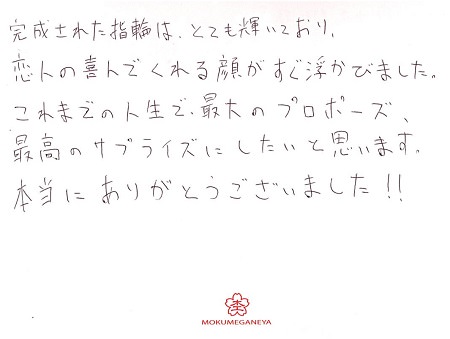 完成された指輪は、とても輝いており、
恋人の喜んでくれる顔がすぐ浮かびました。
これまでの人生で、最大のプロポーズ、
最高のサプライズにしたいと思います。
本当にありがとうございました!!
MOKUMEGANEYA